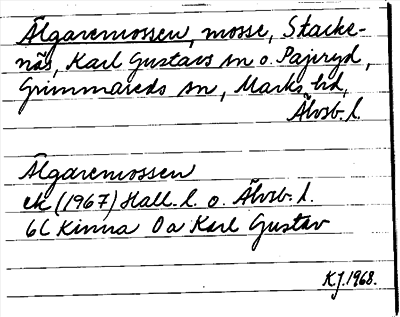 Älgaremossen, mosse, Stacke-
näs, Karl Gustavs sn o. Pajryd,
Grimmareds sn, Marks hd,
Älvsb. l.
Älgaremossen
ek (1967) Hall. l. o. Älvsb. l.
6C Kinna 0a Karl Gustav
KJ. 1968.